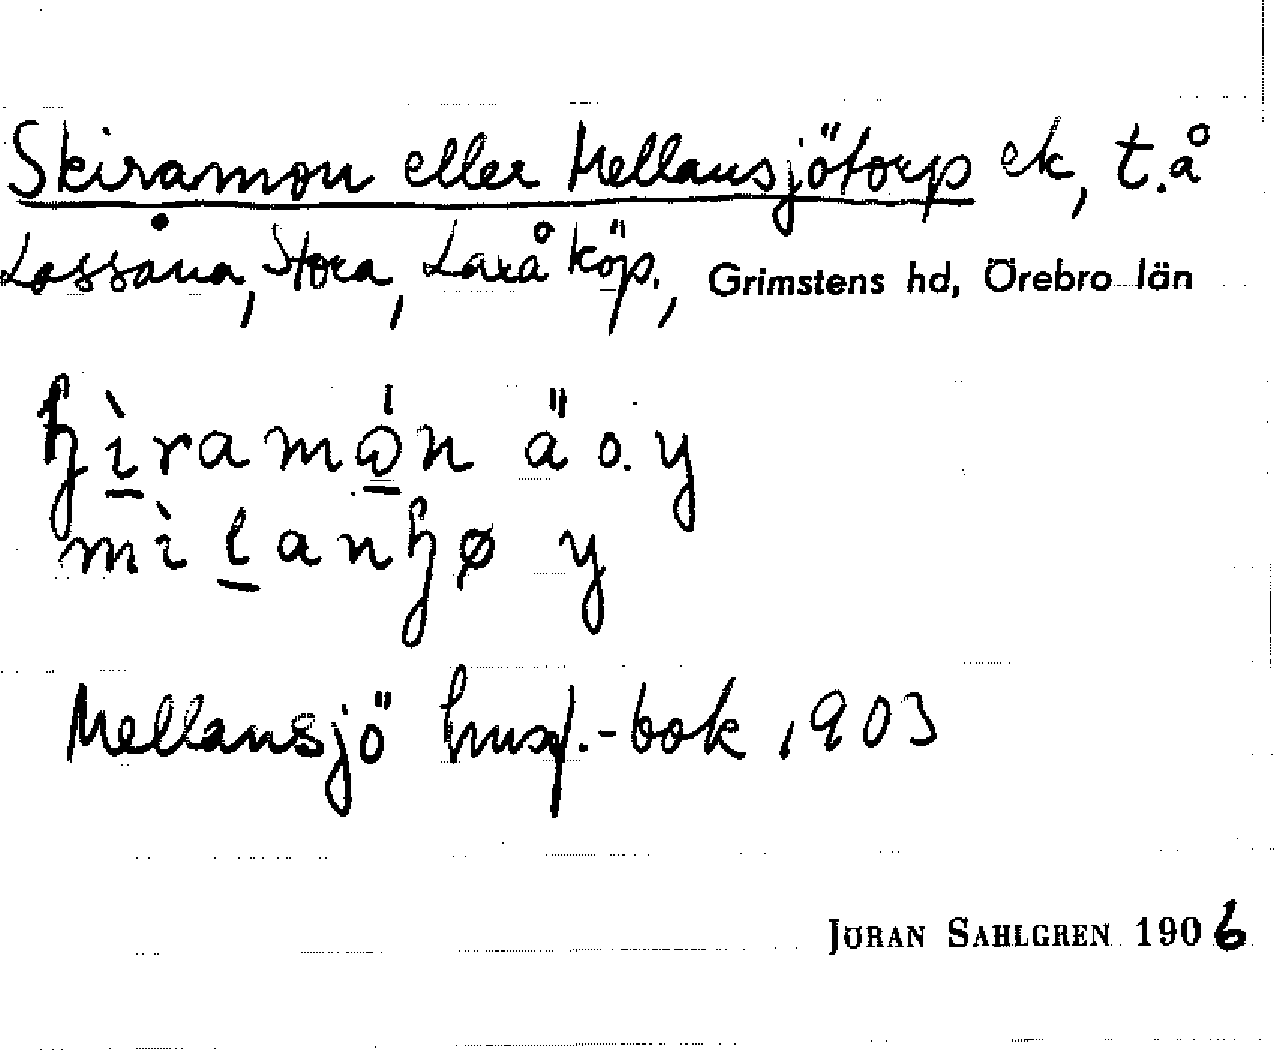 Skiramon eller Mellansjötorp ek, t.å
Lassåna, Stora, Laxå köp., Grimstens hd, Örebro län
ɧìramón ä o. y
mìlanɧø y
Mellansjö husf.-bok 1903
JÖRAN SAHLGREN 1906